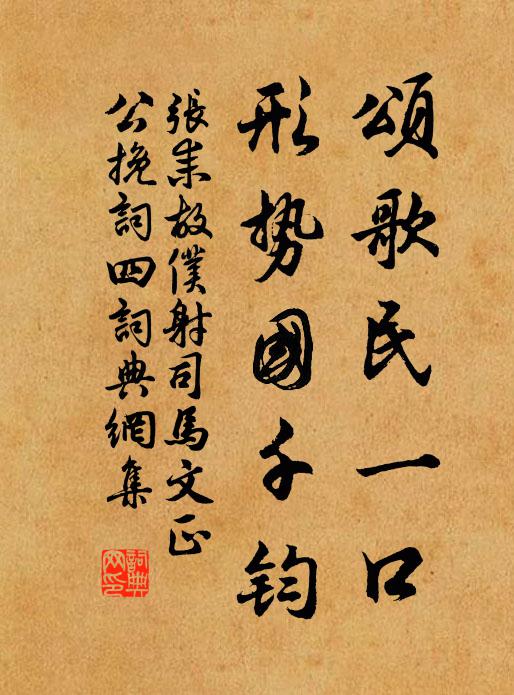 頌歌民一口
形勢國千鈞
張耒故僕射司馬文正
公挽詞四詞典網集
詞典網印